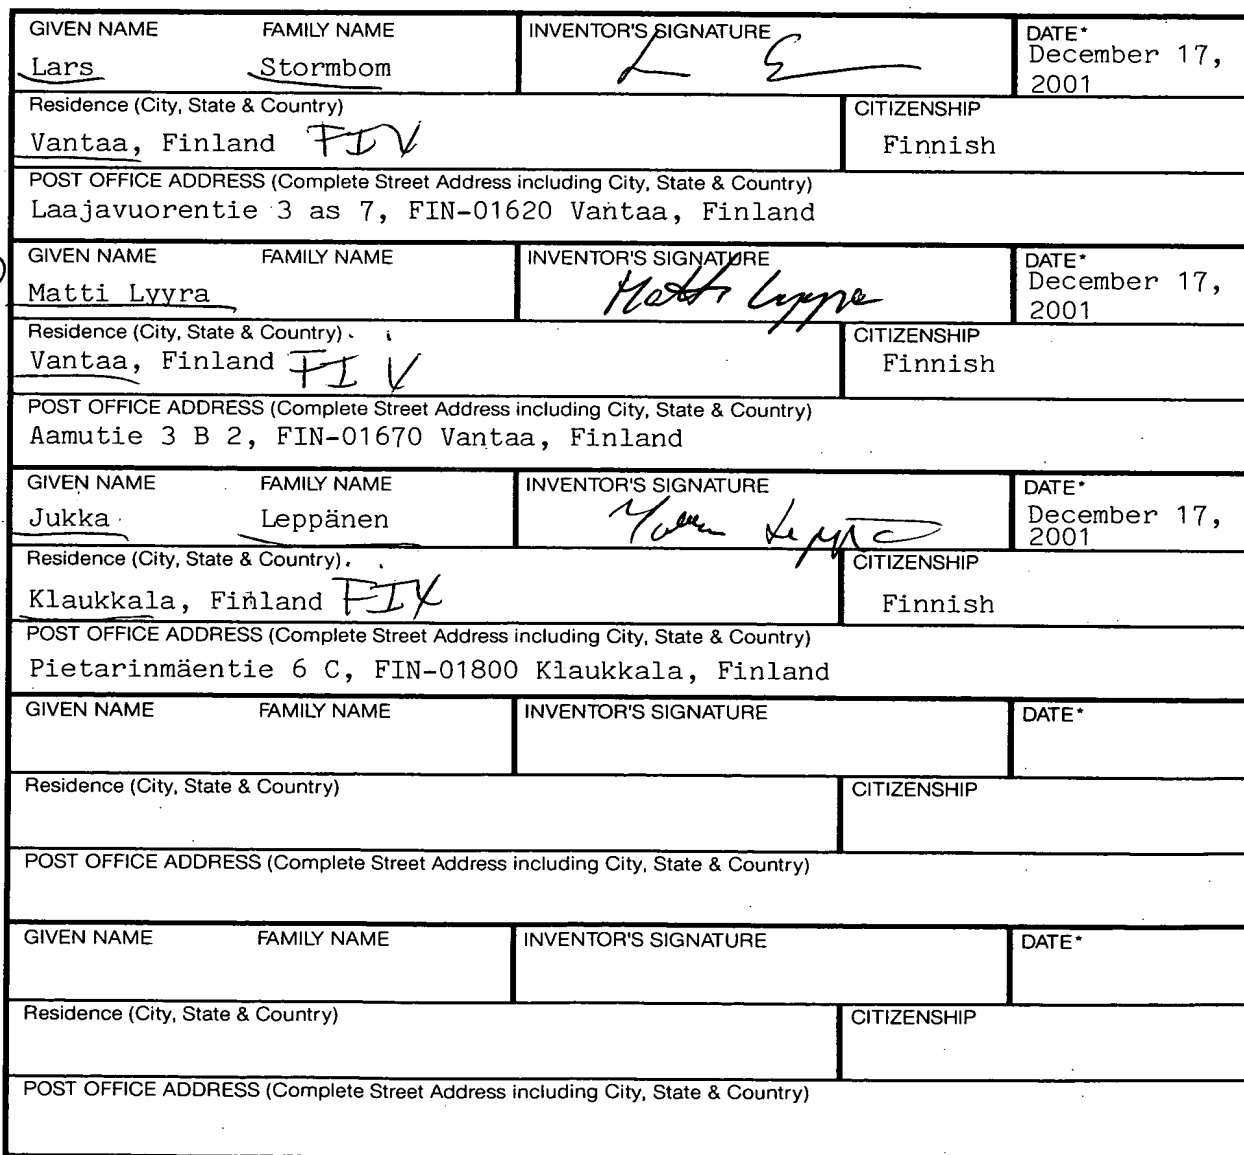 GIVEN NAME FAMILY NAME INVENTOR'S SIGNATURE DATE*
Lars Stormbom December 17,
2001
Residence (City, State & Country) CITIZENSHIP
Vantaa, Finland FIX Finnish
POST OFFICE ADDRESS (Complete Street Address including City, State & Country)
Laajavuorentie 3 as 7, FIN-01620 Vantaa, Finland
GIVEN NAME FAMILY NAME INVENTOR'S SIGNATURE DATE*
Matti Lyyra Matti Lyyra December 17,
2001
Residence (City, State & Country) CITIZENSHIP
Vantaa, Finland FIX Finnish
POST OFFICE ADDRESS (Complete Street Address including City, State & Country)
Aamutie 3 B 2, FIN-01670 Vantaa, Finland
GIVEN NAME FAMILY NAME INVENTOR'S SIGNATURE DATE*
Jukka Leppänen December 17,
2001
Residence (City, State & Country) CITIZENSHIP
Klaukkala, Finland FIX Finnish
POST OFFICE ADDRESS (Complete Street Address including City, State & Country)
Pietarinmäentie 6 C, FIN-01800 Klaukkala, Finland
GIVEN NAME FAMILY NAME INVENTOR'S SIGNATURE DATE*
Residence (City, State & Country) CITIZENSHIP
POST OFFICE ADDRESS (Complete Street Address including City, State & Country)
GIVEN NAME FAMILY NAME INVENTOR'S SIGNATURE DATE*
Residence (City, State & Country) CITIZENSHIP
POST OFFICE ADDRESS (Complete Street Address including City, State & Country)